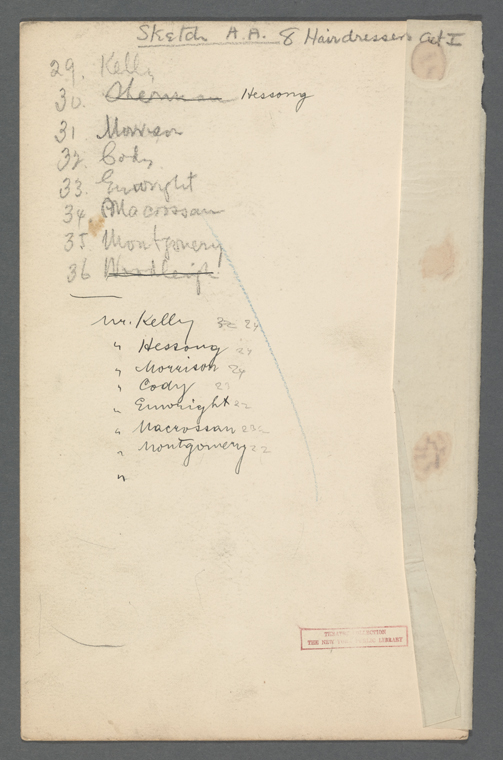 Sketch A.A. 8 Hairdressers Act I
29. Kelly
30. Sherman Hessong
31 Morrison
32. Cody
33. Enwright
34 Macrossan
35 Montgomery
36
Mr. Kelly 32 24
" Hessong 24
" Morrison 24
" Cody 23
" Enwright 22
" Macrossan
" Montgomery 22
"
THEATRE COLLECTION
THE NEW YORK PUBLIC LIBRARY